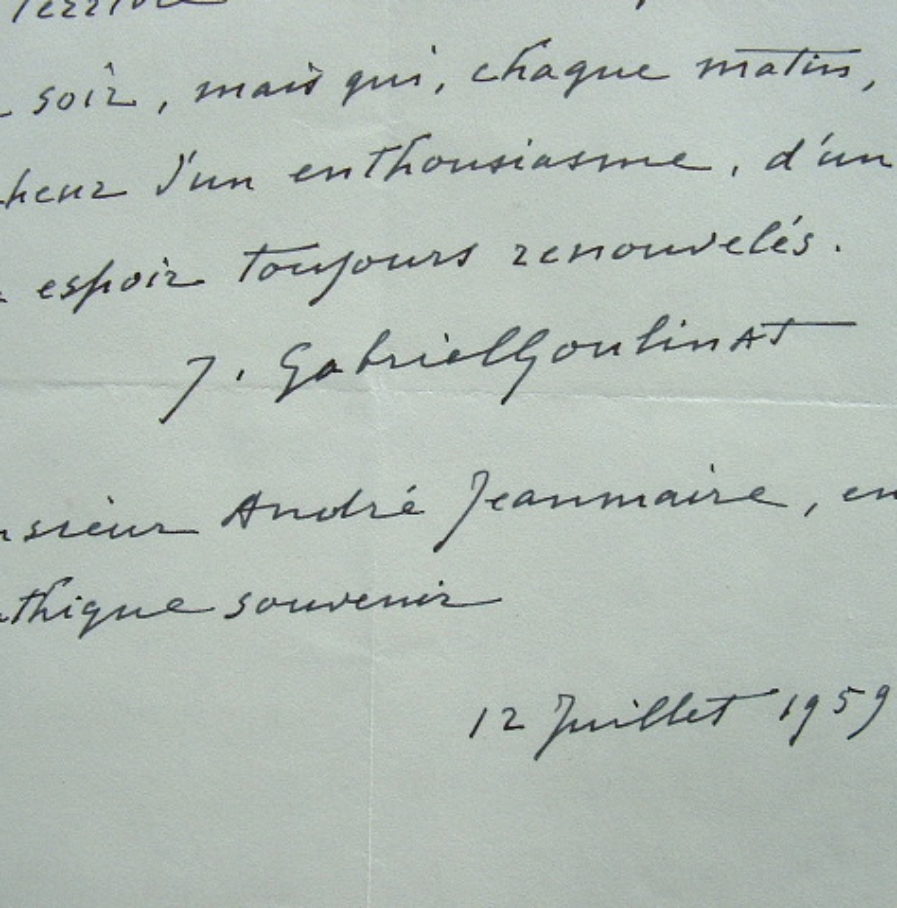 soir, mais qui, chaque matin,
heur d'un enthousiasme, d'un
espoir toujours renouvelés.
J. Gabriel Goulinat
sieur André Jeanmaire, en
thique souvenir
12 Juillet 1959